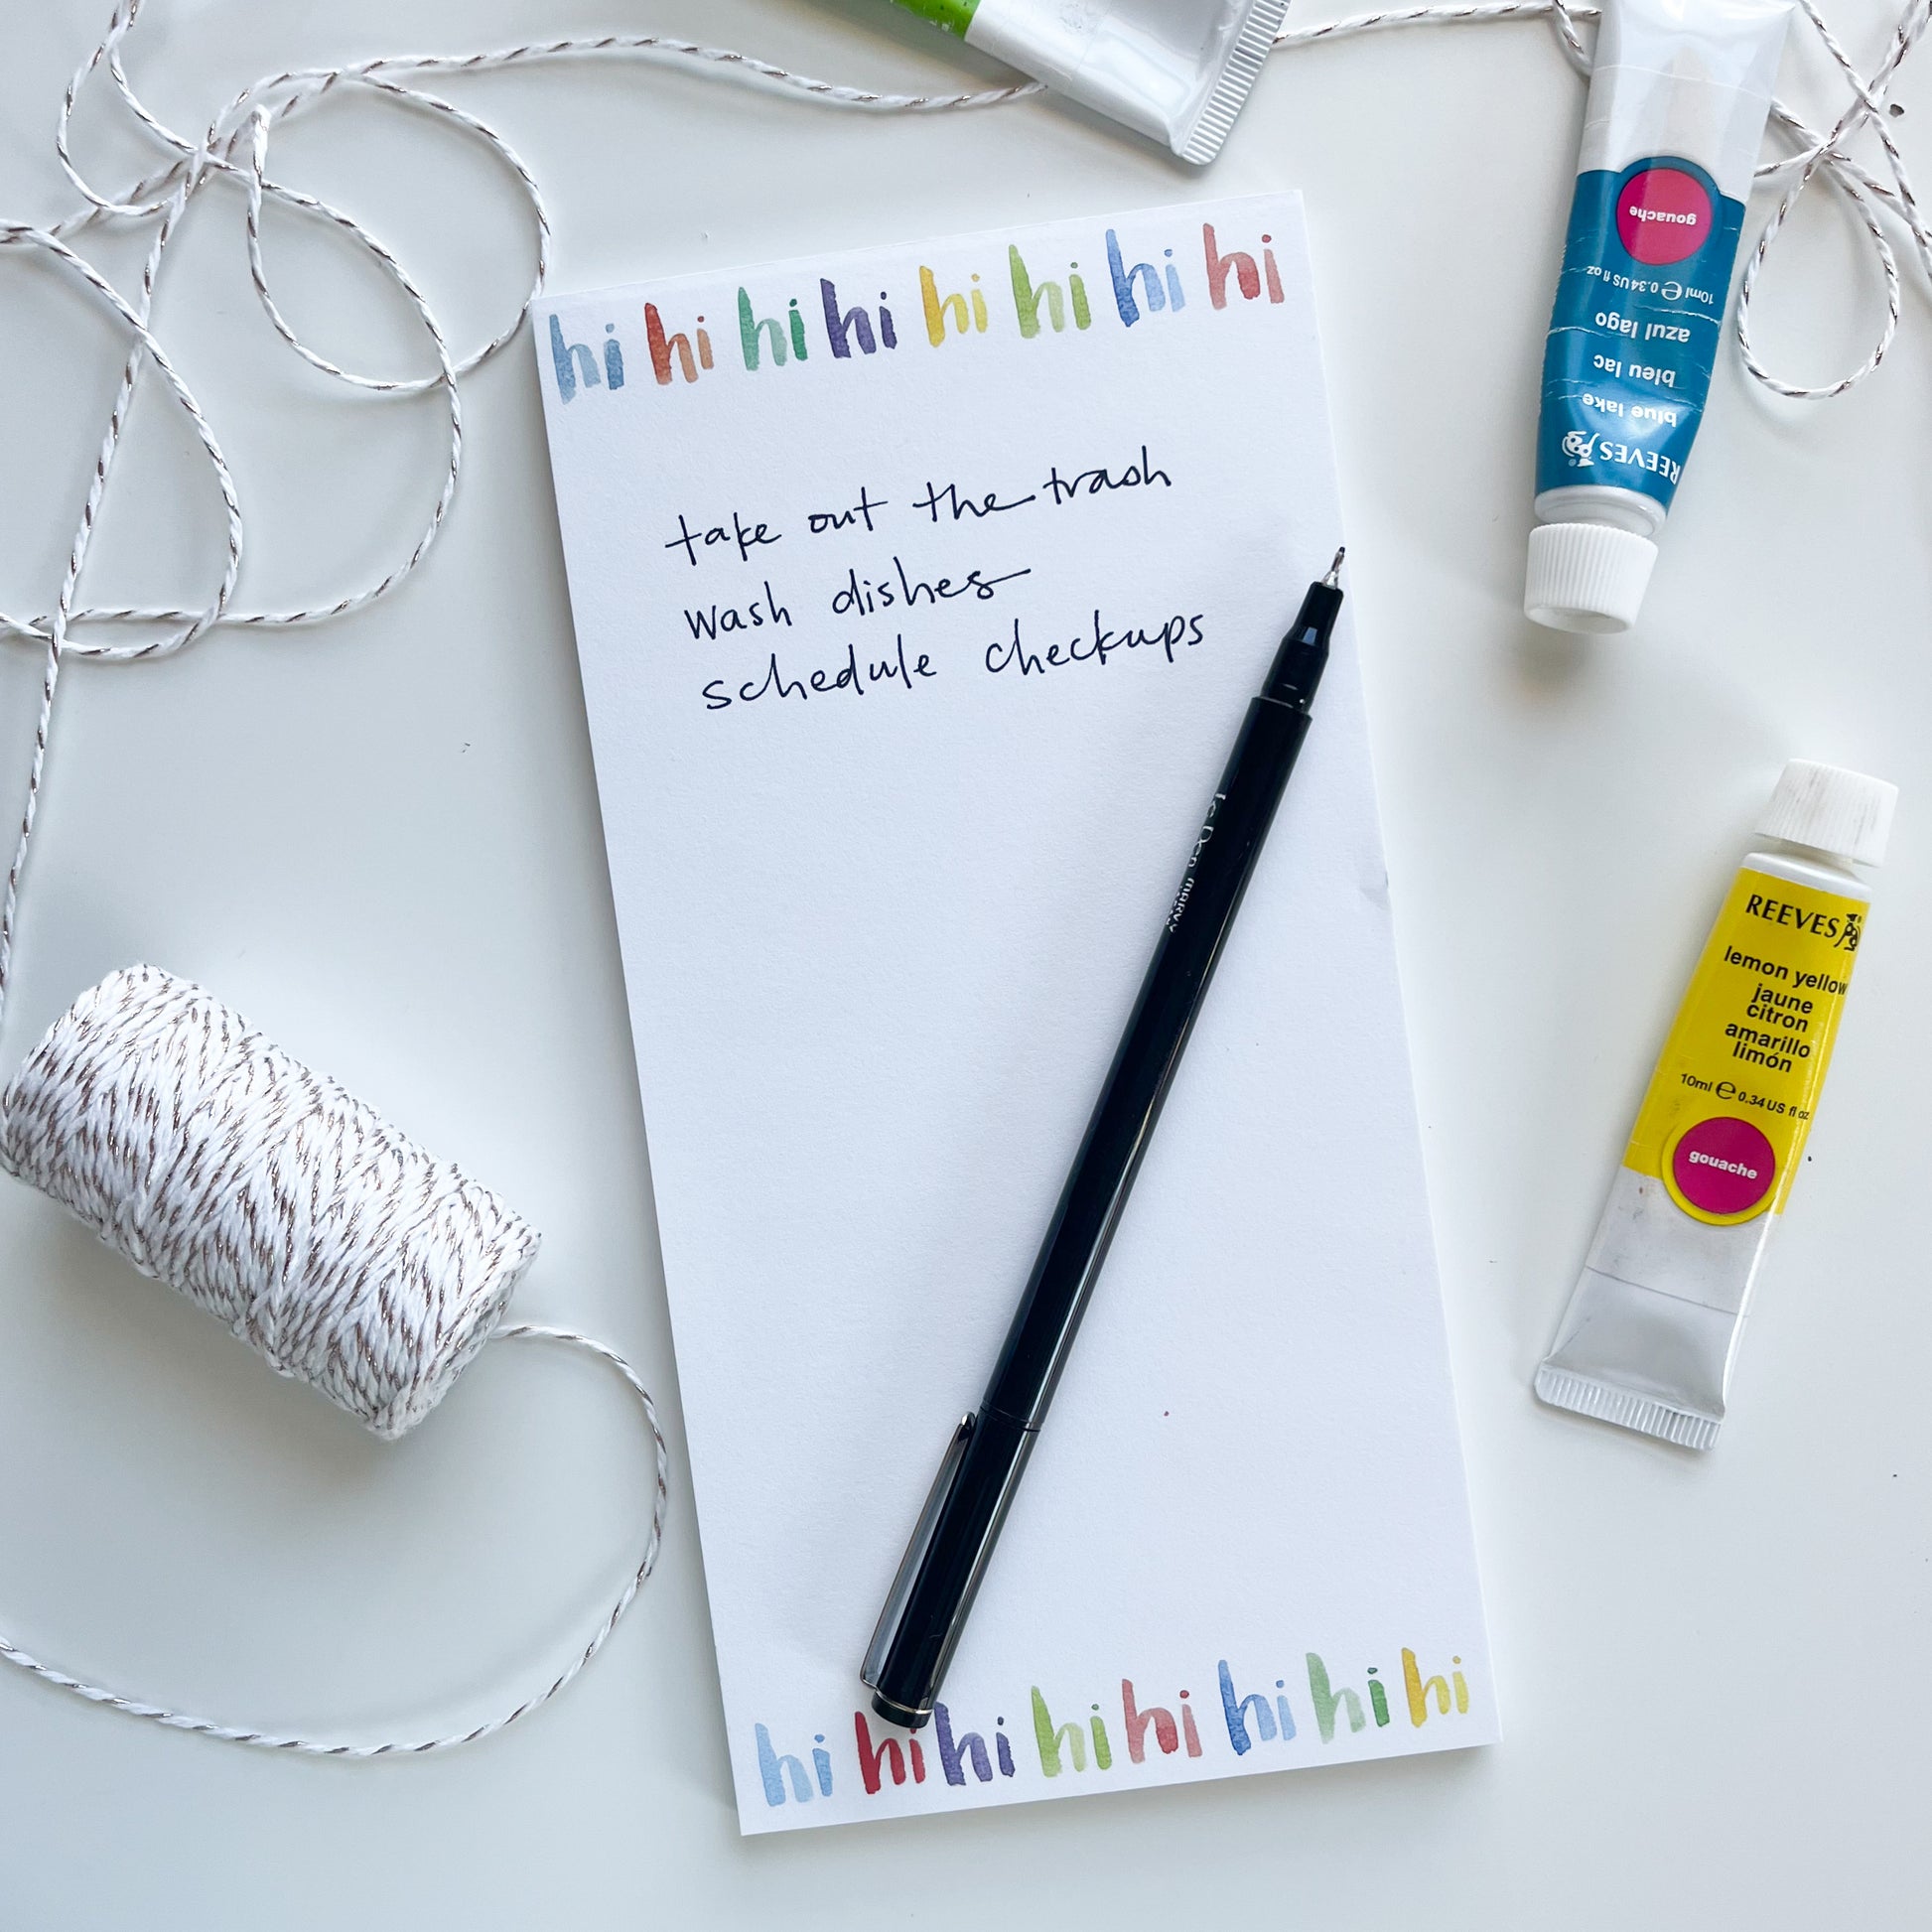 hi hi hi hi hi hi hi hi
take out the trash
wash dishes
schedule checkups
Le Pen MARVY
hi hi hi hi hi hi hi hi
REEVES
blue lake
bleu lac
azul lago
10ml e 0.34 US fl oz
gouache
REEVES
lemon yellow
jaune
citron
amarillo
limón
10ml e 0.34 US fl oz
gouache